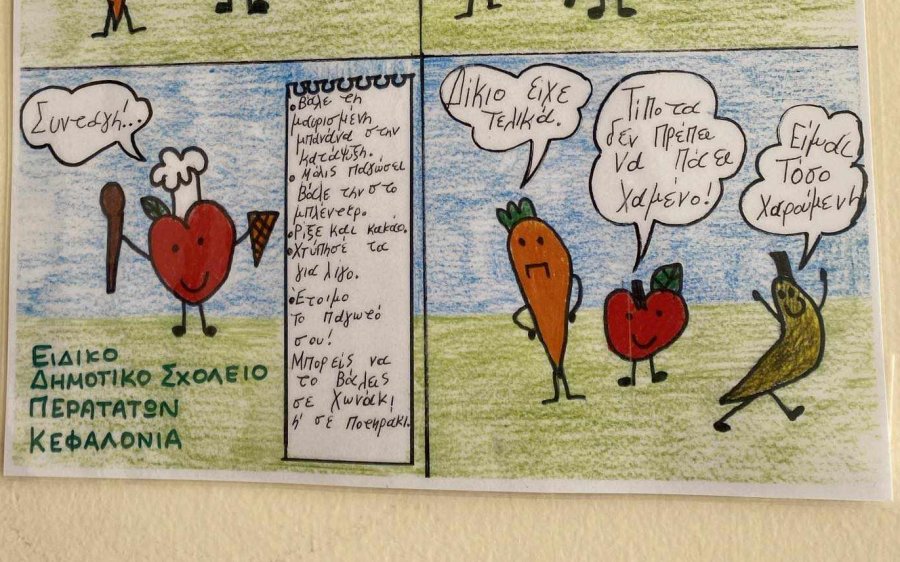 Συνταγή...
• Βάλε τη
μαυρισμένη
μπανάνα στην
κατάψυξη.
• Μόλις παγώσει
βάλε την στο
μπλέντερ.
• Ρίξε και κακάο.
• Χτύπησέ τα
για λίγο.
• Έτοιμο
το παγωτό
σου!
Μπορείς να
το βάλεις
σε χωνάκι
ή σε ποτηράκι.
ΕΙΔΙΚΟ
ΔΗΜΟΤΙΚΟ ΣΧΟΛΕΙΟ
ΠΕΡΑΤΑΤΩΝ
ΚΕΦΑΛΟΝΙΑ
Δίκιο είχε
τελικά.
Τίποτα
δεν πρέπει
να πάει
χαμένο!
Είμαι
Τόσο
χαρούμενη